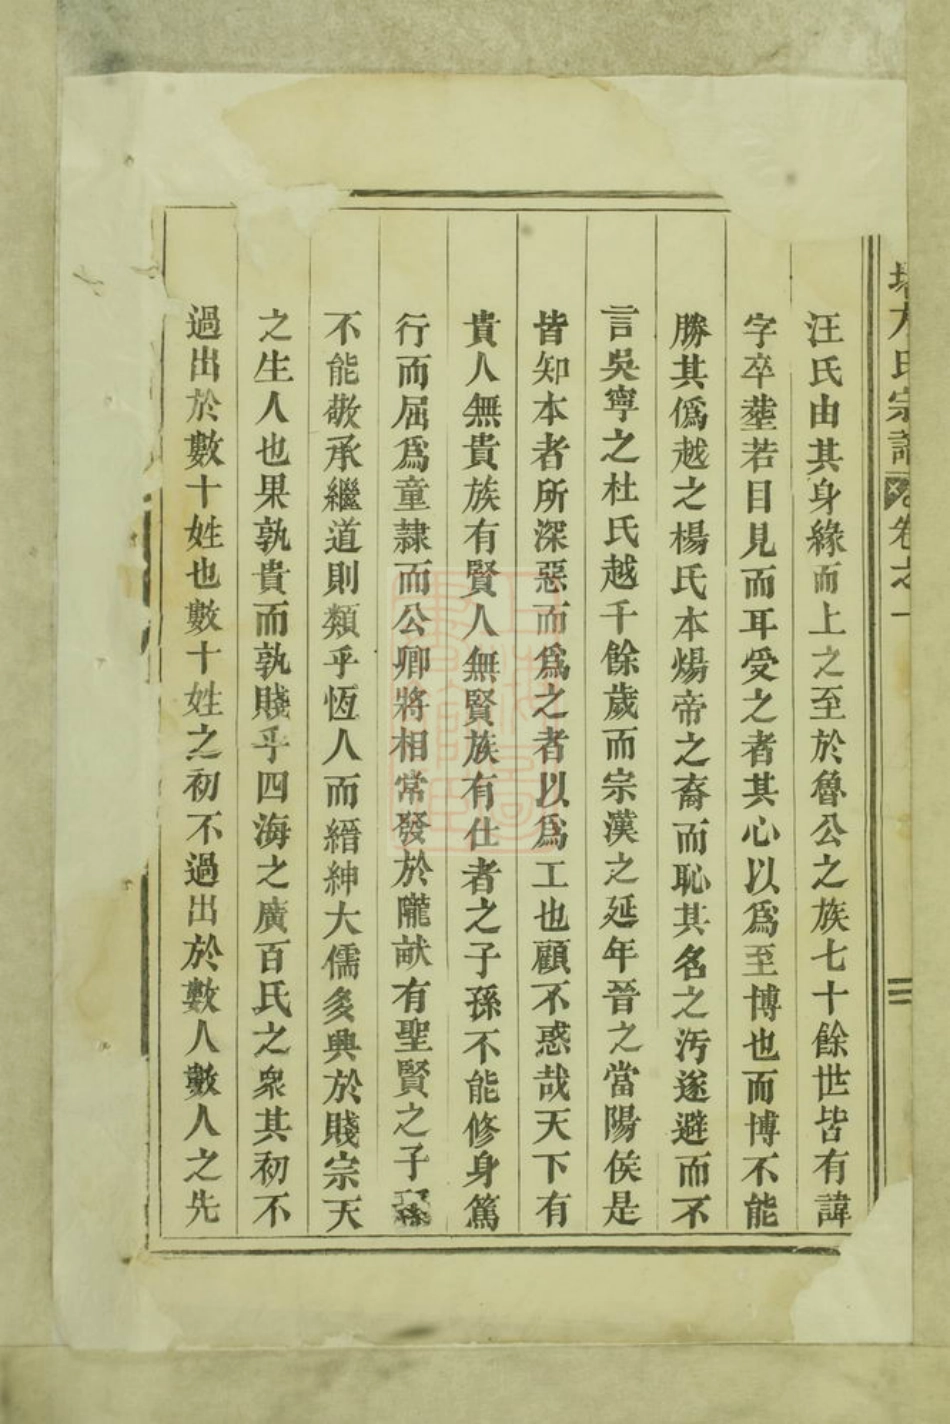 方氏宗譜 卷之一
汪氏由其身緣而上之至於魯公之族七十餘世皆有諱
字卒塟若目見而耳受之者其心以爲至博也而博不能
勝其僞越之楊氏本煬帝之裔而恥其名之汚遂避而不
言吳寧之杜氏越千餘歲而宗漢之延年晉之當陽侯是
皆知本者所深惡而爲之者以爲工也顧不惑哉天下有
貴人無貴族有賢人無賢族有仕者之子孫不能修身篤
行而屈爲童隷而公卿將相常發於隴畝有聖賢之子孫
不能敬承繼道則類乎恆人而縉紳大儒多興於賤宗天
之生人也果孰貴而孰賤乎四海之廣百氏之衆其初不
過出於數十姓也數十姓之初不過出於數人數人之先